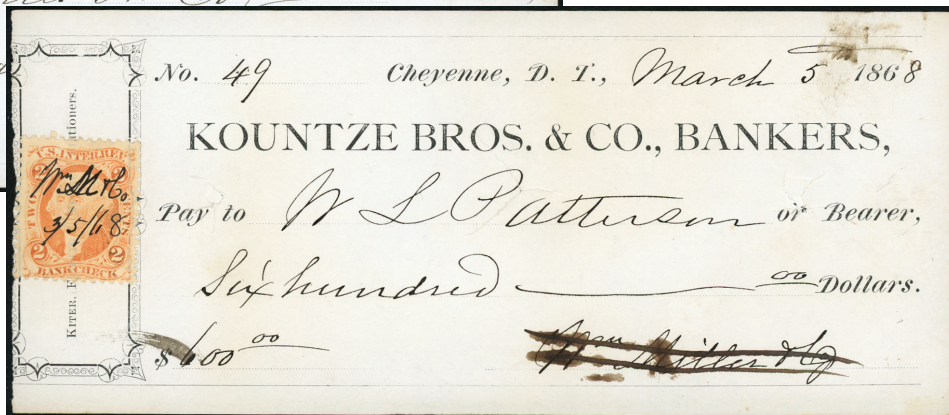 No. 49 Cheyenne, D. T., March 5th 1868
KOUNTZE BROS. & CO., BANKERS,
Pay to W L Patterson or Bearer,
Six hundred 00 Dollars.
$ 600 00
Wm Miller & Co
U.S. INTER. REV.
2 2
TWO CENTS
Wm M & Co
3/5/68
2 2
BANK CHECK
KITER. tioners.